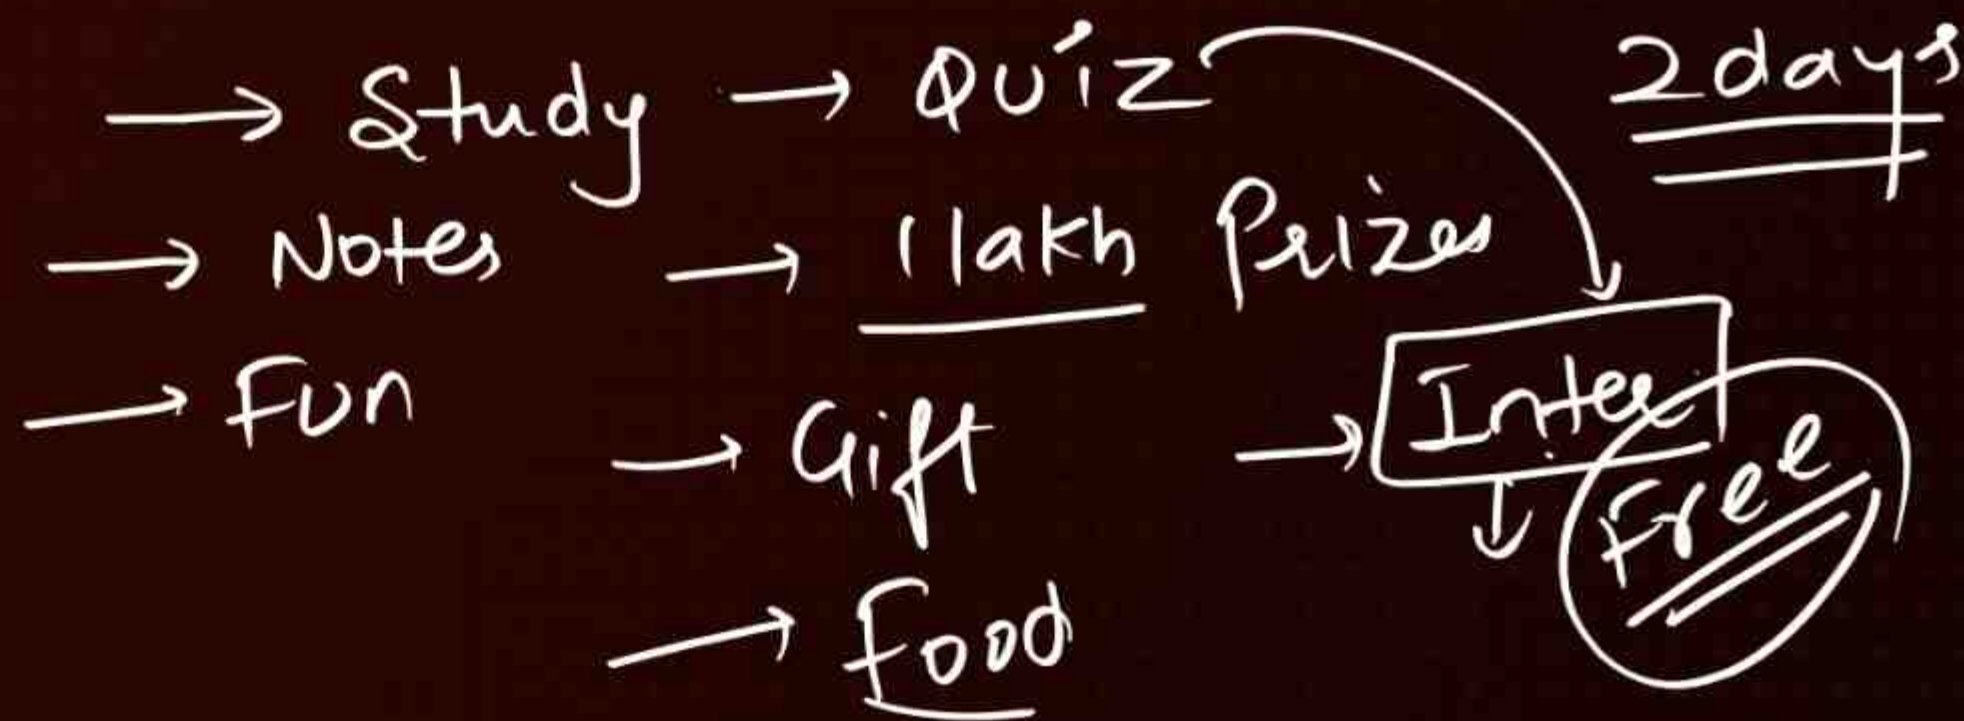 → Study → QUiZ 2days
→ Notes → 1 lakh Prizes
→ Fun → Gift → Inter
Free
→ Food